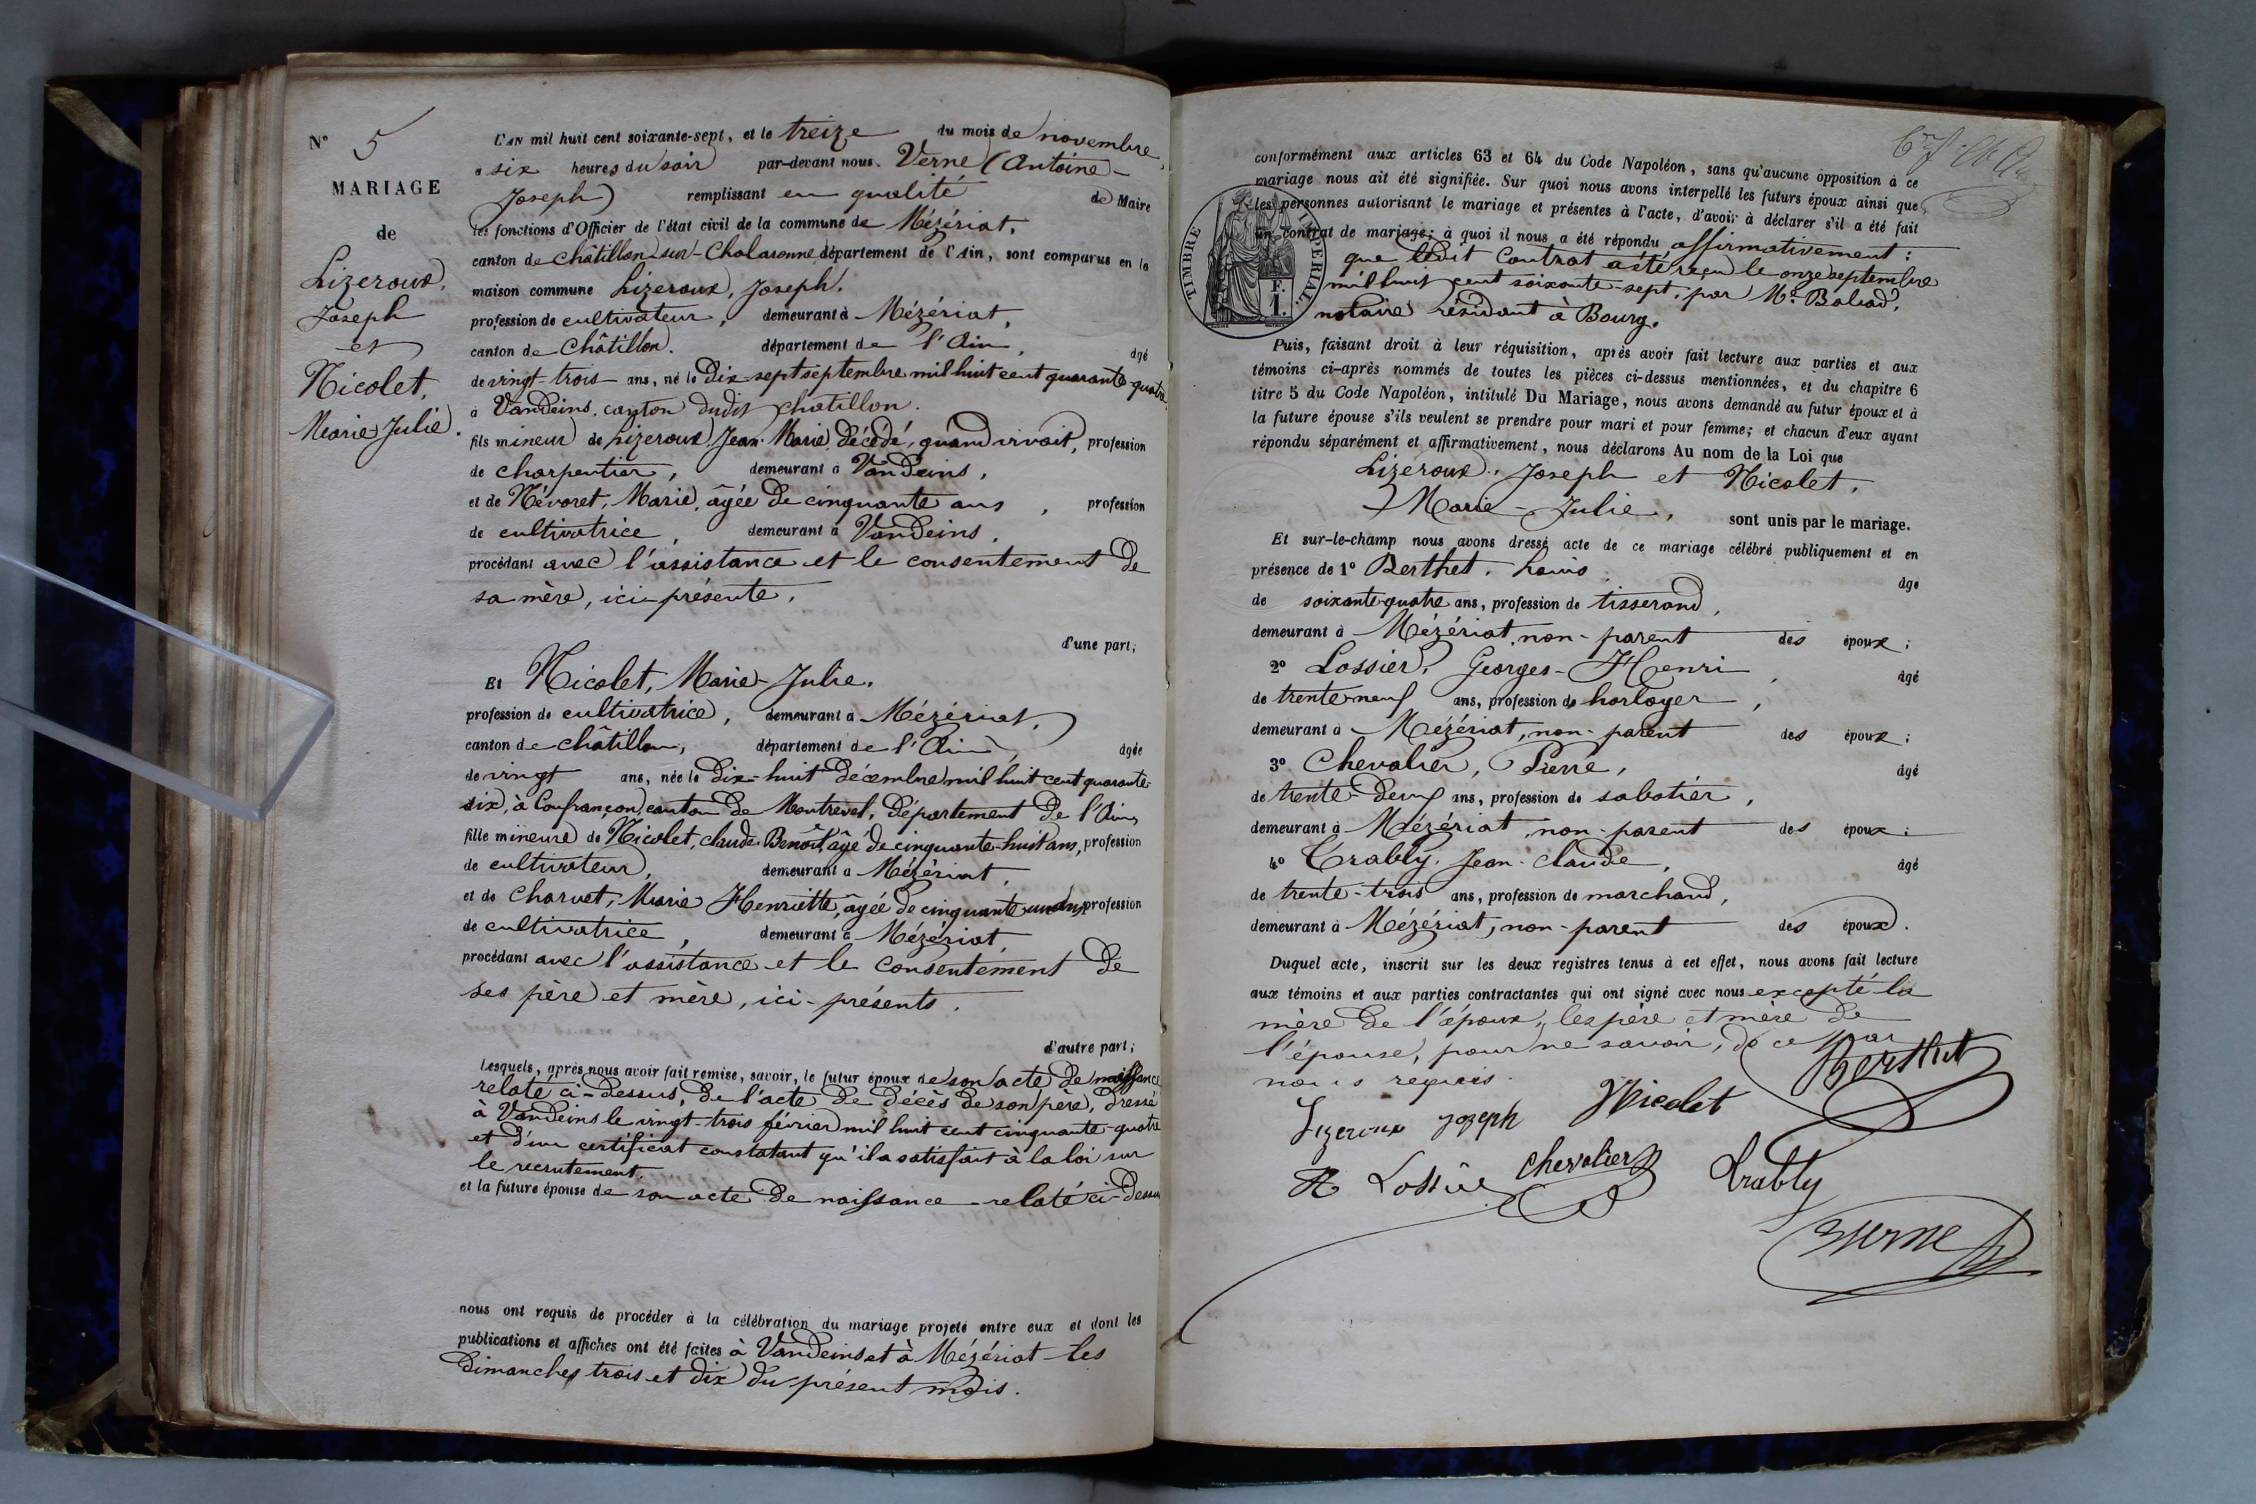 N° 5
MARIAGE
de
Lizeroux,
Joseph
et
Nicolet,
Marie Julie.
L'AN mil huit cent soixante-sept, et le treize du mois de novembre,
a six heures du soir par-devant nous. Verne (Antoine-
Joseph) remplissant en qualité de Maire
les fonctions d'Officier de l'état civil de la commune de Mézériat,
canton de Châtillon-sur-Chalaronne, département de l'Ain, sont comparus en la
maison commune Lizeroux, Joseph.
profession de cultivateur, demeurant à Mézériat,
canton de Châtillon. département de l'Ain, âgé
de vingt-trois ans, né le dix-sept septembre mil huit cent quarante-quatre
à Vandeins, canton dudit Chatillon.
fils mineur de Lizeroux Jean-Marie, décédé, quand vivait, profession
de charpentier, demeurant à Vandeins,
et de Névoret, Marie, âgée de cinquante ans, profession
de cultivatrice, demeurant à Vandeins,
procédant avec l'assistance et le consentement de
sa mère, ici-présente,
d'une part;
Et Nicolet, Marie-Julie.
profession de cultivatrice, demeurant à Mézériat,
canton de Châtillon, département de l'Ain, âgée
de vingt ans, née le dix-huit décembre mil huit cent quarante-
six, à Confrançon, canton de Montrevel, département de l'Ain,
fille mineure de Nicolet, Claude-Benoît âgé de cinquante-huit ans, profession
de cultivateur, demeurant à Mézériat,
et de Charvet, Marie Henriette, âgée de cinquante ans, profession
de cultivatrice, demeurant à Mézériat,
procédant avec l'assistance et le consentement de
ses père et mère, ici-présents.
d'autre part;
Lesquels, après nous avoir fait remise, savoir, le futur époux de son acte de naissance
relaté ci-dessus, de l'acte de décès de son père, dressé
à Vandeins le vingt-trois février mil huit cent cinquante-quatre
et d'un certificat constatant qu'il a satisfait à la loi sur
le recrutement.
et la future épouse de son acte de naissance relaté ci-dessus
nous ont requis de procéder à la célébration du mariage projeté entre eux et dont les
publications et affiches ont été faites à Vandeins et à Mézériat les
dimanches trois et dix du présent mois.
conformément aux articles 63 et 64 du Code Napoléon, sans qu'aucune opposition à ce
mariage nous ait été signifiée. Sur quoi nous avons interpellé les futurs époux ainsi que
les personnes autorisant le mariage et présentes à l'acte, d'avoir à déclarer s'il a été fait
un contrat de mariage; à quoi il nous a été répondu affirmativement:
que ledit Contrat a été reçu le onze septembre
mil huit cent soixante-sept, par Me
notaire résidant à Bourg.
TIMBRE IMPERIAL.
F.
1.
Puis, faisant droit à leur réquisition, après avoir fait lecture aux parties et aux
témoins ci-après nommés de toutes les pièces ci-dessus mentionnées, et du chapitre 6
titre 5 du Code Napoléon, intitulé Du Mariage, nous avons demandé au futur époux et à
la future épouse s'ils veulent se prendre pour mari et pour femme; et chacun d'eux ayant
répondu séparément et affirmativement, nous déclarons Au nom de la Loi que
Lizeroux, Joseph et Nicolet,
Marie-Julie, sont unis par le mariage.
Et sur-le-champ nous avons dressé acte de ce mariage célébré publiquement et en
présence de 1° Berthet, Louis âgé
de soixante-quatre ans, profession de tisserand,
demeurant à Mézériat, non-parent des époux;
2° Lossier, Georges-Henri, âgé
de trente-neuf ans, profession de horloger,
demeurant à Mézériat, non-parent des époux;
3° Chevalier, Pierre, âgé
de trente-deux ans, profession de sabotier,
demeurant à Mézériat, non-parent des époux;
4° Trably, Jean-Claude, âgé
de trente-trois ans, profession de marchand,
demeurant à Mézériat, non-parent des époux.
Duquel acte, inscrit sur les deux registres tenus à cet effet, nous avons fait lecture
aux témoins et aux parties contractantes qui ont signé avec nous excepté la
mère de l'époux, les père et mère de
l'épouse, pour ne savoir, de ce par
nous requis.
Berthet
Lizeroux Joseph Nicolet
H Lossier Chevalier Trably
Verne